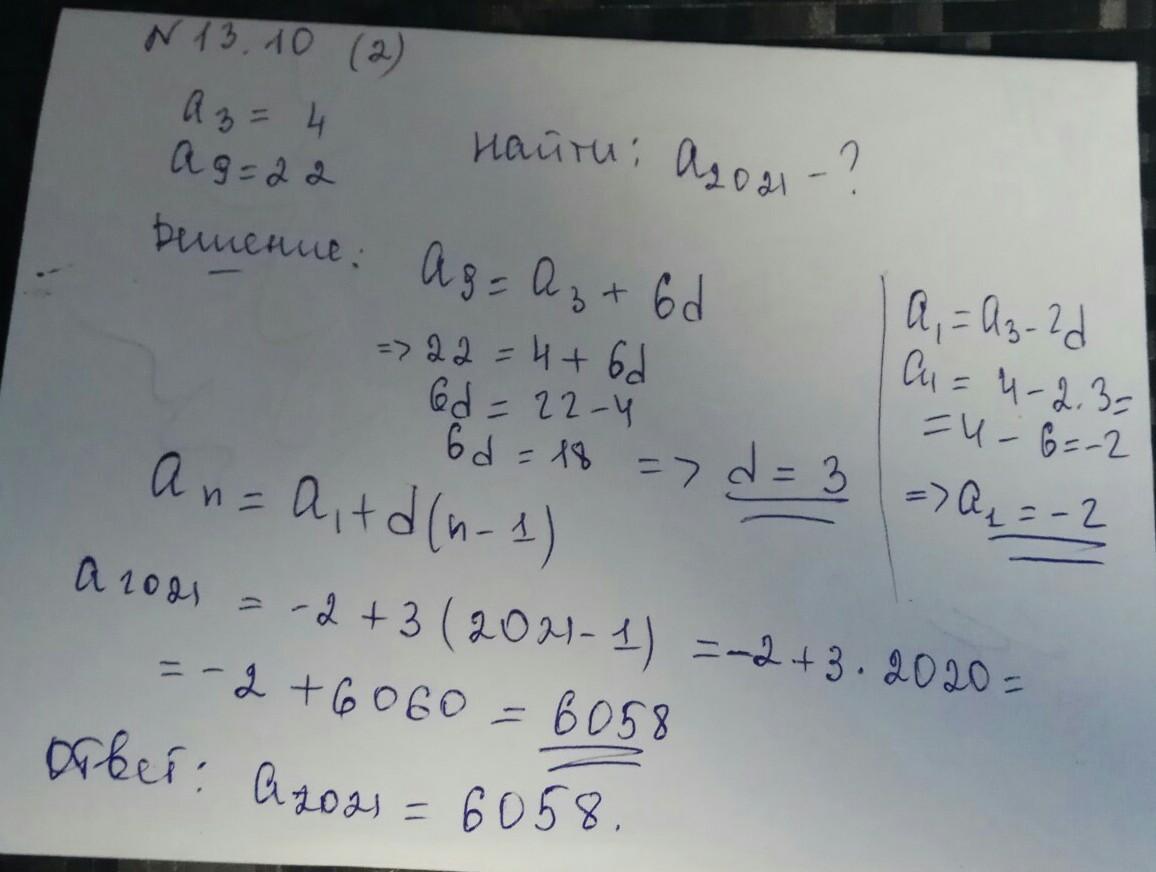 N 13.10 (2)
a₃ = 4
a₉ = 22
найти: a₂₀₂₁ - ?
Решение:
a₉ = a₃ + 6d
=> 22 = 4 + 6d
6d = 22 - 4
6d = 18 => d = 3
a₁ = a₃ - 2d
a₁ = 4 - 2.3 =
= 4 - 6 = -2
=> a₁ = -2
aₙ = a₁ + d(n - 1)
a₂₀₂₁ = -2 + 3(2021 - 1) = -2 + 3 · 2020 =
= -2 + 6060 = 6058
Ответ: a₂₀₂₁ = 6058.